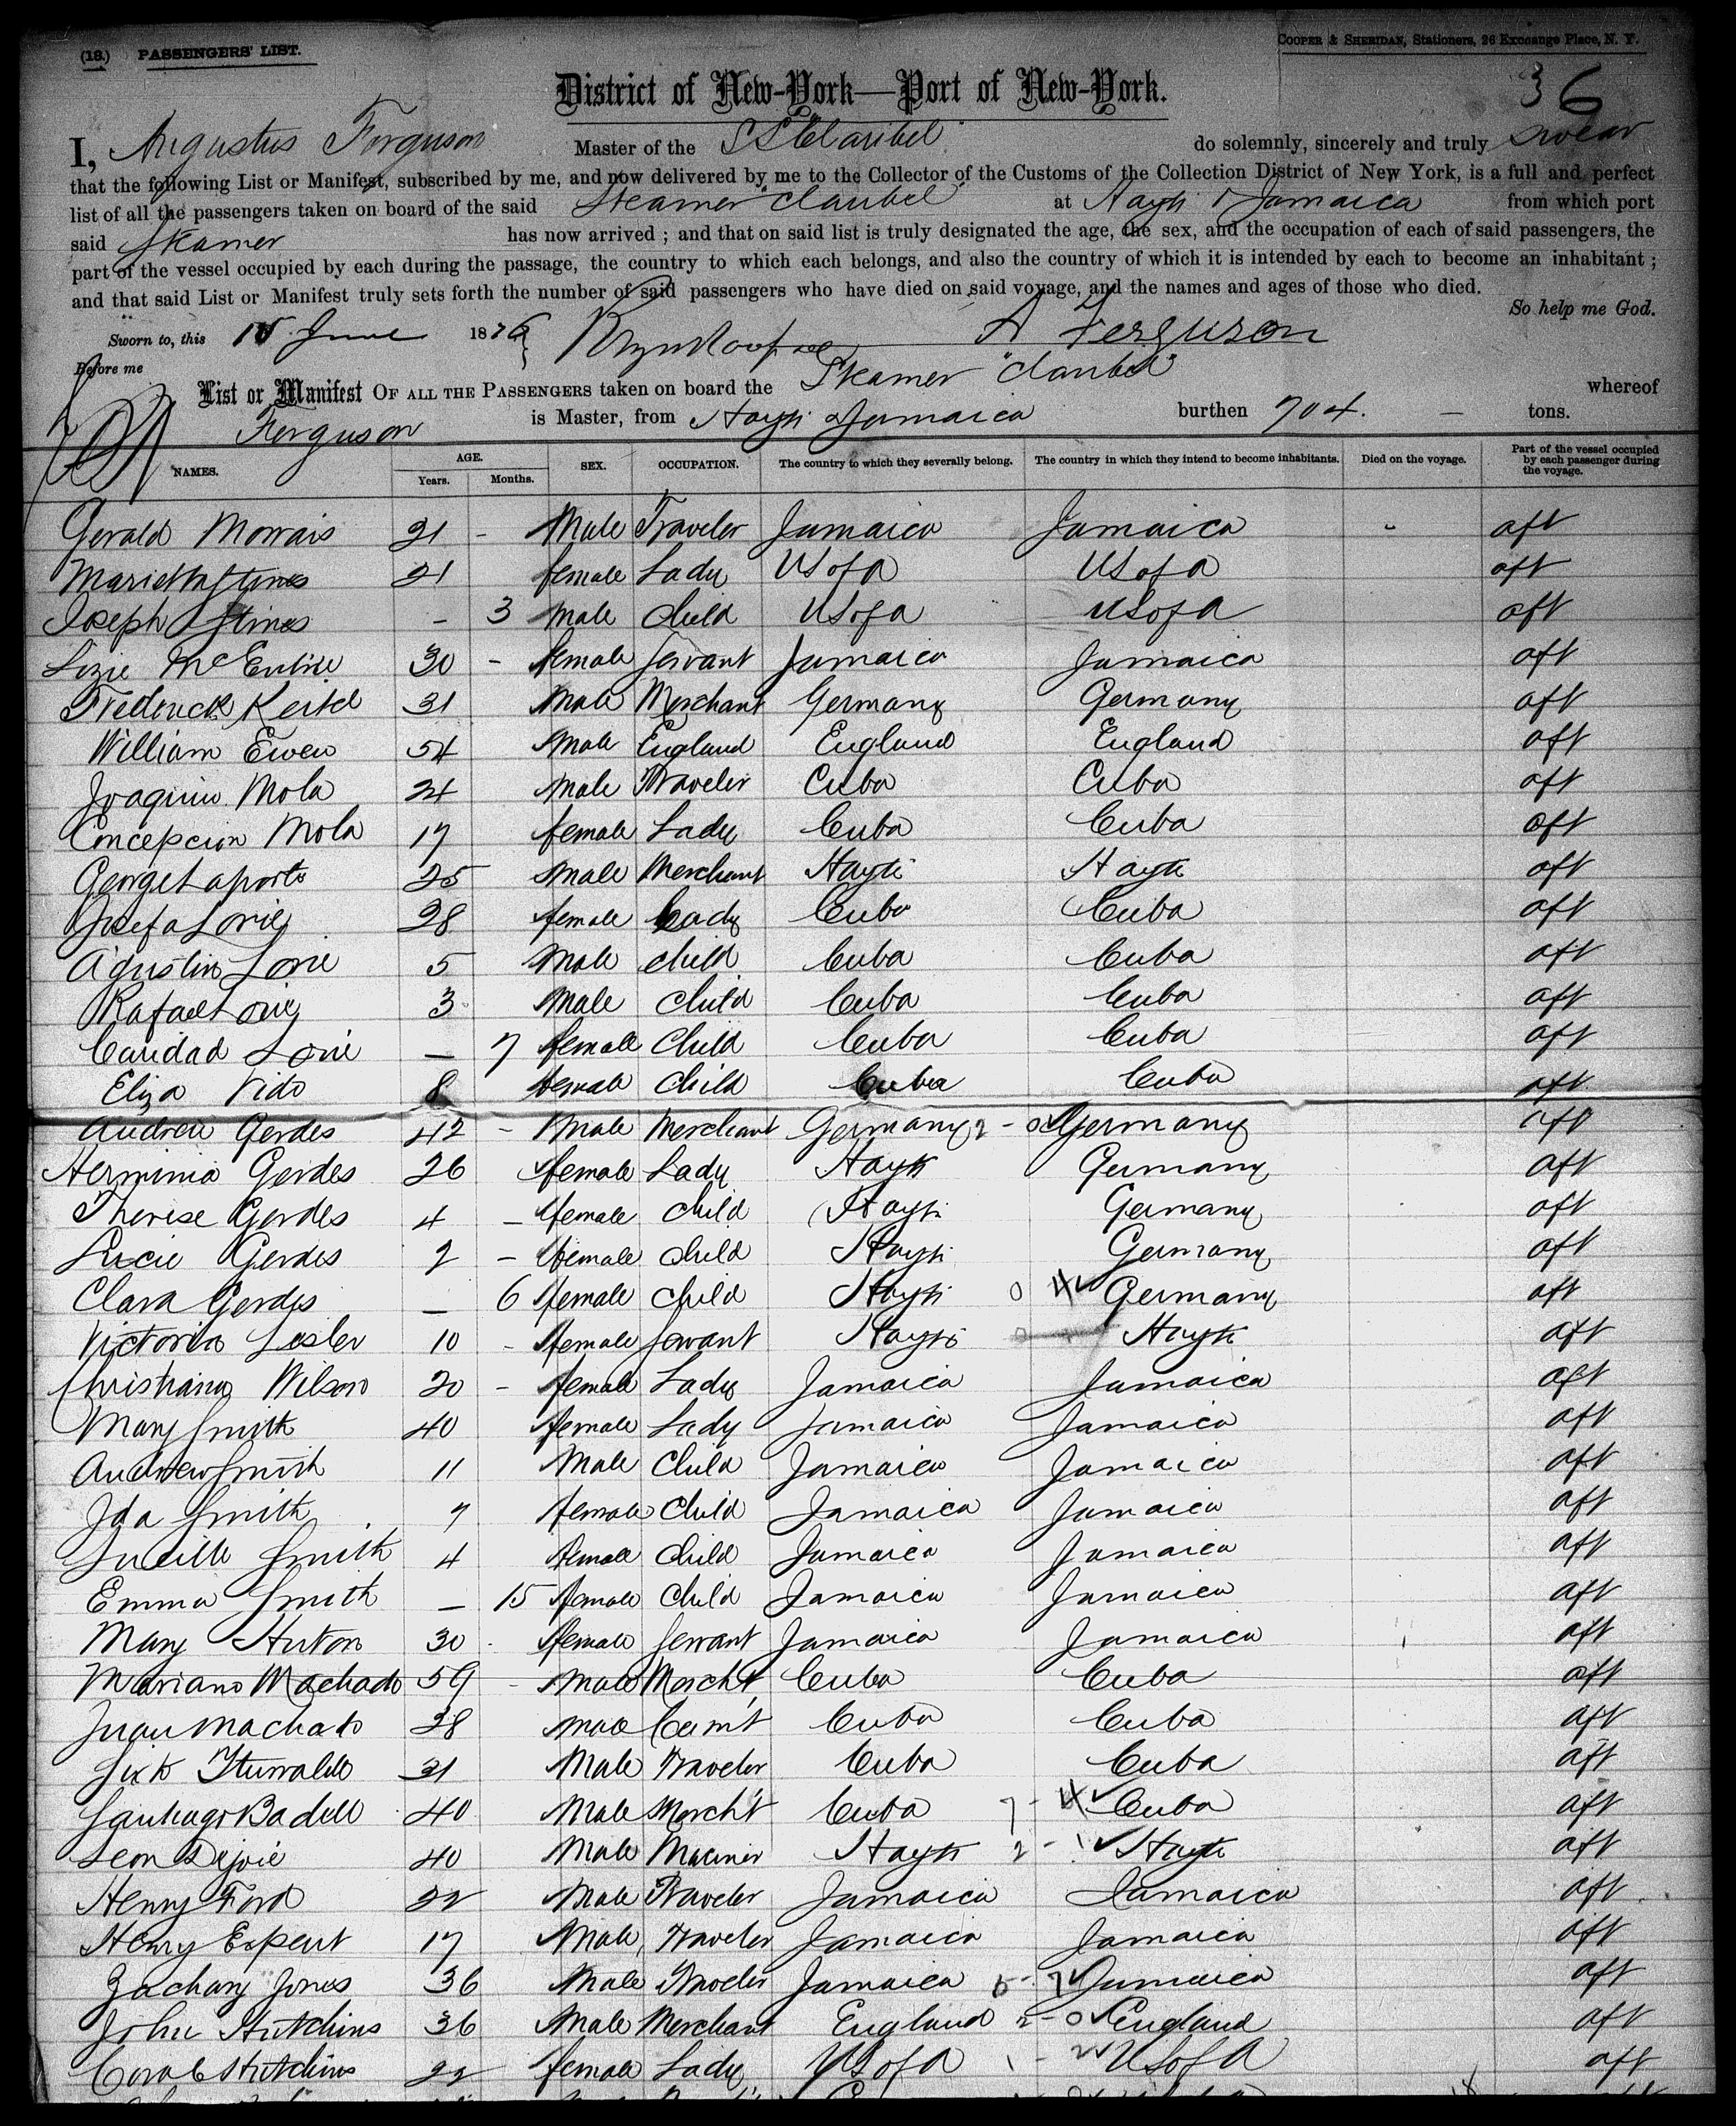 (18.) PASSENGERS' LIST.
COOPER & SHERIDAN, Stationers, 26 Exchange Place, N. Y.
36
District of New-York—Port of New-York.
I, Augustus Ferguson Master of the SS Claribel do solemnly, sincerely and truly swear
that the following List or Manifest, subscribed by me, and now delivered by me to the Collector of the Customs of the Collection District of New York, is a full and perfect
list of all the passengers taken on board of the said Steamer "Claribel" at Hayti & Jamaica from which port
said Steamer has now arrived ; and that on said list is truly designated the age, the sex, and the occupation of each of said passengers, the
part of the vessel occupied by each during the passage, the country to which each belongs, and also the country of which it is intended by each to become an inhabitant ;
and that said List or Manifest truly sets forth the number of said passengers who have died on said voyage, and the names and ages of those who died.
So help me God.
Sworn to, this 15 June 1876 A Ferguson
Before me
List or Manifest OF ALL THE PASSENGERS taken on board the Steamer "Claribel" whereof
Ferguson is Master, from Hayti & Jamaica burthen 704. — tons.
NAMES. AGE. Years. Months. SEX. OCCUPATION. The country to which they severally belong. The country in which they intend to become inhabitants. Died on the voyage. Part of the vessel occupied by each passenger during the voyage.
Gerald Morrais 21 - Male Traveler Jamaica Jamaica - aft
21 female Lady US of A US of A aft
Joseph Stines - 3 male child US of A US of A aft
Lizie McEntire 30 - female Servant Jamaica Jamaica aft
Frederick Keitel 31 Male Merchant Germany Germany aft
William Ewen 54 Male England England England aft
Joaquin Mola 24 Male Traveler Cuba Cuba aft
Concepcion Mola 17 female Lady Cuba Cuba aft
George Laporte 25 male Merchant Hayti Hayti aft
Josefa Lorie 28 female Lady Cuba Cuba aft
Agustin Lorie 5 Male child Cuba Cuba aft
Rafael Lorie 3 Male Child Cuba Cuba aft
Caridad Lorie — 7 female Child Cuba Cuba aft
Eliza Vido 8 female Child Cuba Cuba aft
Andrew Gerdes 42 - Male Merchant Germany 2 - 0 Germany aft
Herminia Gerdes 26 female Lady Hayti Germany aft
Therese Gerdes 4 - female Child Hayti Germany aft
Lucie Gerdes 2 - female child Hayti Germany aft
Clara Gerdes — 6 female Child Hayti 0 4 Germany aft
Victoria Lesler 10 - female Servant Hayti Hayti aft
Christiana Wilson 20 - female Lady Jamaica Jamaica aft
Mary Smith 40 female Lady Jamaica Jamaica aft
Andrew Smith 11 Male Child Jamaica Jamaica aft
Ida Smith 7 female Child Jamaica Jamaica aft
Lucille Smith 4 female Child Jamaica Jamaica aft
Emma Smith — 15 female Child Jamaica Jamaica aft
Mary Huton 30 - female Servant Jamaica Jamaica aft
Mariano Machado 59 - Male Mercht Cuba Cuba aft
Juan Machado 28 male Cuba Cuba aft
Sixto 31 Male Traveler Cuba Cuba aft
Santiago Badell 40 Male Mercht Cuba 7 - 4 Cuba aft
Leon Dejoie 40 Male Mariner Hayti 2 - 1 Hayti aft
Henry Ford 22 Male Traveler Jamaica Jamaica aft
Henry Expeut 17 Male Traveler Jamaica Jamaica aft
Zachary Jones 36 Male Traveler Jamaica 5 - 7 Jamaica aft
John Hutchins 36 Male Merchant England 2 - 0 England aft
Cora C Hutchins 22 female Lady US of A 1 - 2 US of A aft